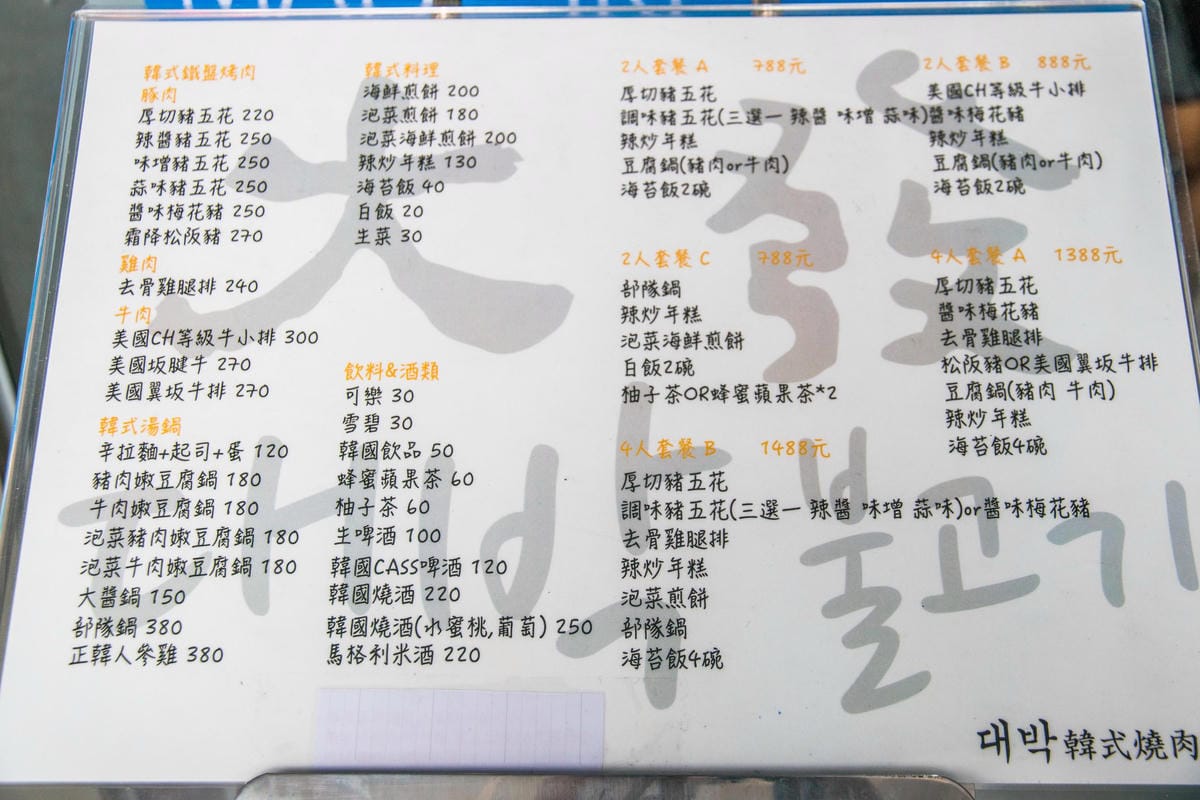 韓式鐵盤烤肉
豚肉
厚切豬五花 220
辣醬豬五花 250
味增豬五花 250
蒜味豬五花 250
醬味梅花豬 250
霜降松阪豬 270
雞肉
去骨雞腿排 240
牛肉
美國CH等級牛小排 300
美國坂腱牛 270
美國翼坂牛排 270
韓式湯鍋
辛拉麵+起司+蛋 120
豬肉嫩豆腐鍋 180
牛肉嫩豆腐鍋 180
泡菜豬肉嫩豆腐鍋 180
泡菜牛肉嫩豆腐鍋 180
大醬鍋 150
部隊鍋 380
正韓人參雞 380
韓式料理
海鮮煎餅 200
泡菜煎餅 180
泡菜海鮮煎餅 200
辣炒年糕 130
海苔飯 40
白飯 20
生菜 30
飲料&酒類
可樂 30
雪碧 30
韓國飲品 50
蜂蜜蘋果茶 60
柚子茶 60
生啤酒 100
韓國CASS啤酒 120
韓國燒酒 220
韓國燒酒(水蜜桃,葡萄) 250
馬格利米酒 220
2人套餐 A 788元
厚切豬五花
調味豬五花(三選一 辣醬 味增 蒜味)
辣炒年糕
豆腐鍋(豬肉or牛肉)
海苔飯2碗
2人套餐 B 888元
美國CH等級牛小排
醬味梅花豬
辣炒年糕
豆腐鍋(豬肉or牛肉)
海苔飯2碗
2人套餐 C 788元
部隊鍋
辣炒年糕
泡菜海鮮煎餅
白飯2碗
柚子茶OR蜂蜜蘋果茶*2
4人套餐 A 1388元
厚切豬五花
醬味梅花豬
去骨雞腿排
松阪豬OR美國翼坂牛排
豆腐鍋(豬肉 牛肉)
辣炒年糕
海苔飯4碗
4人套餐 B 1488元
厚切豬五花
調味豬五花(三選一 辣醬 味增 蒜味)or醬味梅花豬
去骨雞腿排
辣炒年糕
泡菜煎餅
部隊鍋
海苔飯4碗
大發
대박 불고기
대박韓式燒肉